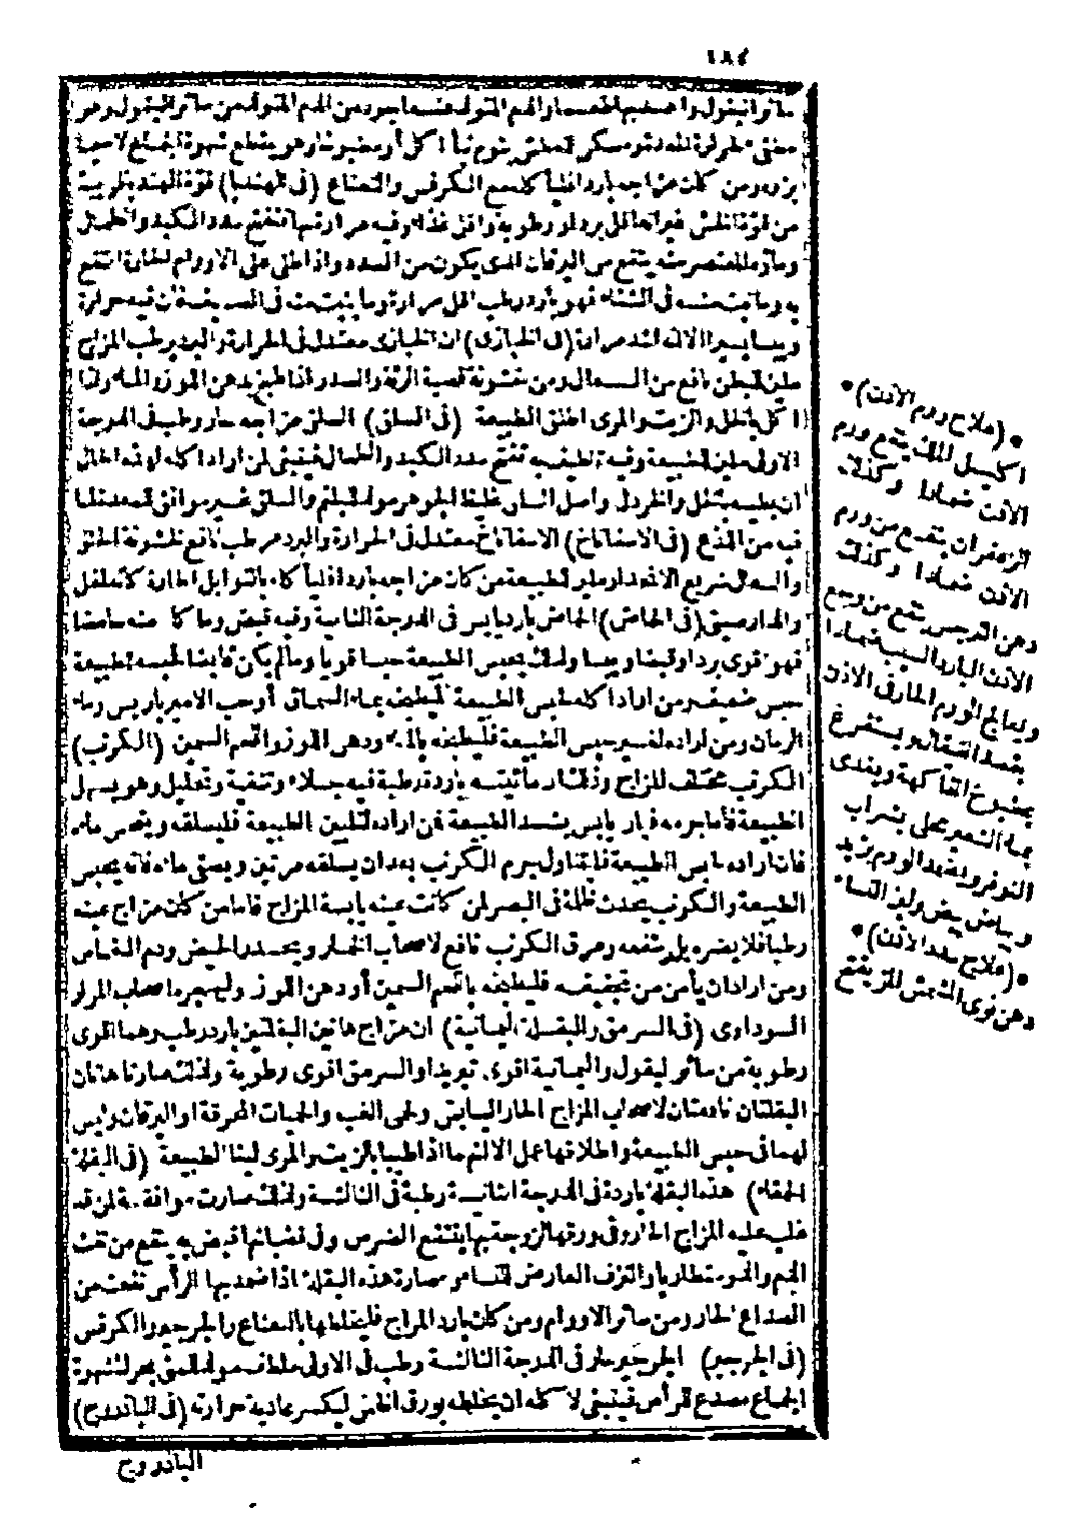 ١٨٤
سائر البقول وأعسر انهضاما والدم المتولد عنه أجود من الدم المتولد من سائر البقول وهو
برده ومن كان مزاجه باردا فليأكله مع الكرفس والنعناع (في الهندبا) قوة الهندبا قريبة
من قوة الخس غير انها أقل بردا ورطوبة وأقل غذاء وفيه مرارة بها تفتح سدد الكبد والطحال
وماؤه المعتصر منه ينفع من اليرقان الذى يكون من السدد واذا طلى على الاورام الحارة انتفع
به وما ينبت منه فى الشتاء فهو بارد رطب أقل مرارة وما ينبت منه فى الصيف فان فيه حرارة
ويبسا يسيرا لانه أشد مرارة (فى الخبازى) ان الخبازى معتدل فى الحرارة والبرد رطب المزاج
ملين للبطن نافع من السعال ومن خشونة قصبة الرئة والصدر اذا طبخ بدهن اللوز والماء واذا
أكل بالخل والزيت والمرى أطلق الطبيعة (فى السلق) السلق مزاجه حار رطب فى الدرجة
الاولى ملين للطبيعة وفيه تلطيف به تفتح سدد الكبد والطحال فينبغى لمن أراد أكله لهذه الحال
أن يطبخه بخل والخردل وأصل السلق غليظ الجوهر مولد للبلغم والسلق غير موافق للمعدة لما
فيه من اللذع (فى الاسفاناخ) الاسفاناخ معتدل فى الحرارة والبرد مرطب نافع لخشونة الحلق
والسعال سريع الانحدار ملين للطبيعة من كان مزاجه باردا فليأكله بالتوابل الحارة كالفلفل
والدارصينى (فى الحماض) الحماض بارد يابس فى الدرجة الثانية وفيه قبض وما كان منه حامضا
فهو أقوى بردا وقبضا ويبسا ولذلك يحبس الطبيعة حبسا قويا وما لم يكن قابضا فحبسه للطبيعة
حبس ضعيف ومن أراد أكله لحبس الطبيعة فليطبخه بماء السماق أو حب الامبرباريس وماء
الرمان ومن أراده لغير حبس الطبيعة فليطبخه بالماء ودهن اللوز والحم السمين (الكرنب)
الكرنب مختلف المزاج وذلك ان مائيته باردة رطبة فيه جلاء وتنقية وتحليل وهو يسهل
الطبيعة فأما جرمه فبارد يابس يشد الطبيعة فمن أراده لتليين الطبيعة فليسلقه ويتحسى ماءه
فان أراده لحبس الطبيعة فليتناول جرم الكرنب بعد ان يسلقه مرتين ويصفى ماءه فانه يحبس
الطبيعة والكرنب يحدث ظلمة فى البصر لمن كانت عينه يابسة المزاج فاما من كان مزاج عينه
رطبا فلا يضره بل ينفعه ومرق الكرنب نافع لاصحاب الخمار ويحدر الحيض ودم النفاس
ومن أراد ان يأمن من تجفيفه فليطبخه بالحم السمين أو دهن اللوز وليهجره أصحاب المرار
السوداوى (فى السرمق والبقلة اليمانية) ان مزاج هاتين البقلتين بارد رطب وهما أقوى
رطوبة من سائر البقول واليمانية أقوى تبريدا والسرمق أقوى رطوبة ولذلك صارتا هاتان
البقلتان نافعتان لاصحاب المزاج الحار اليابس ولحمى الغب والحميات المحرقة واليرقان وليس
لهما فى حبس الطبيعة واطلاقها عمل الا انهما اذا طبخا بالزيت والمرى لينا الطبيعة (فى البقلة
الحمقاء) هذه البقلة باردة فى الدرجة الثالثة رطبة فى الثانية ولذلك صارت موافقة لمن قد
غلب عليه المزاج الحار وفى ورقها لزوجة بها ينتفع الضرس وفى قضبانها قبض به ينفع من نفث
الدم والدوسنطاريا والنزف العارض للنساء وعصارة هذه البقلة اذا ضمد بها الرأس نفعت من
الصداع الحار ومن سائر الاورام ومن كان بارد المزاج فليخلطها بالنعناع والجرجير والكرفس
(فى الجرجير) الجرجير حار فى الدرجة الثالثة رطب فى الاولى ملطف مولد للمنى محرك لشهوة
الجماع مصدع للرأس فينبغى لآكله ان يخلطه بورق الخس ليكسر عادية حرارته (فى الباذروج)
الباذروج
* (علاج ورم الاذن) *
اكليل الملك ينفع ورم
الاذن ضمادا وكذلك
الزعفران ينفع من ورم
الاذن ضمادا وكذلك
دهن النرجس ينفع من وجع
الاذن البارد السبب ضمادا
ويعالج الورم الحار فى الاذن
بفصد القيفال ويستفرغ
بمطبوخ الفاكهة ويغذى
بماء الشعير على بشراب
النوفر ويضمد الورم بزبد
وبياض بيض ولبن النساء
* (علاج سدد الاذن) *
دهن نوى المشمش المر يفتح